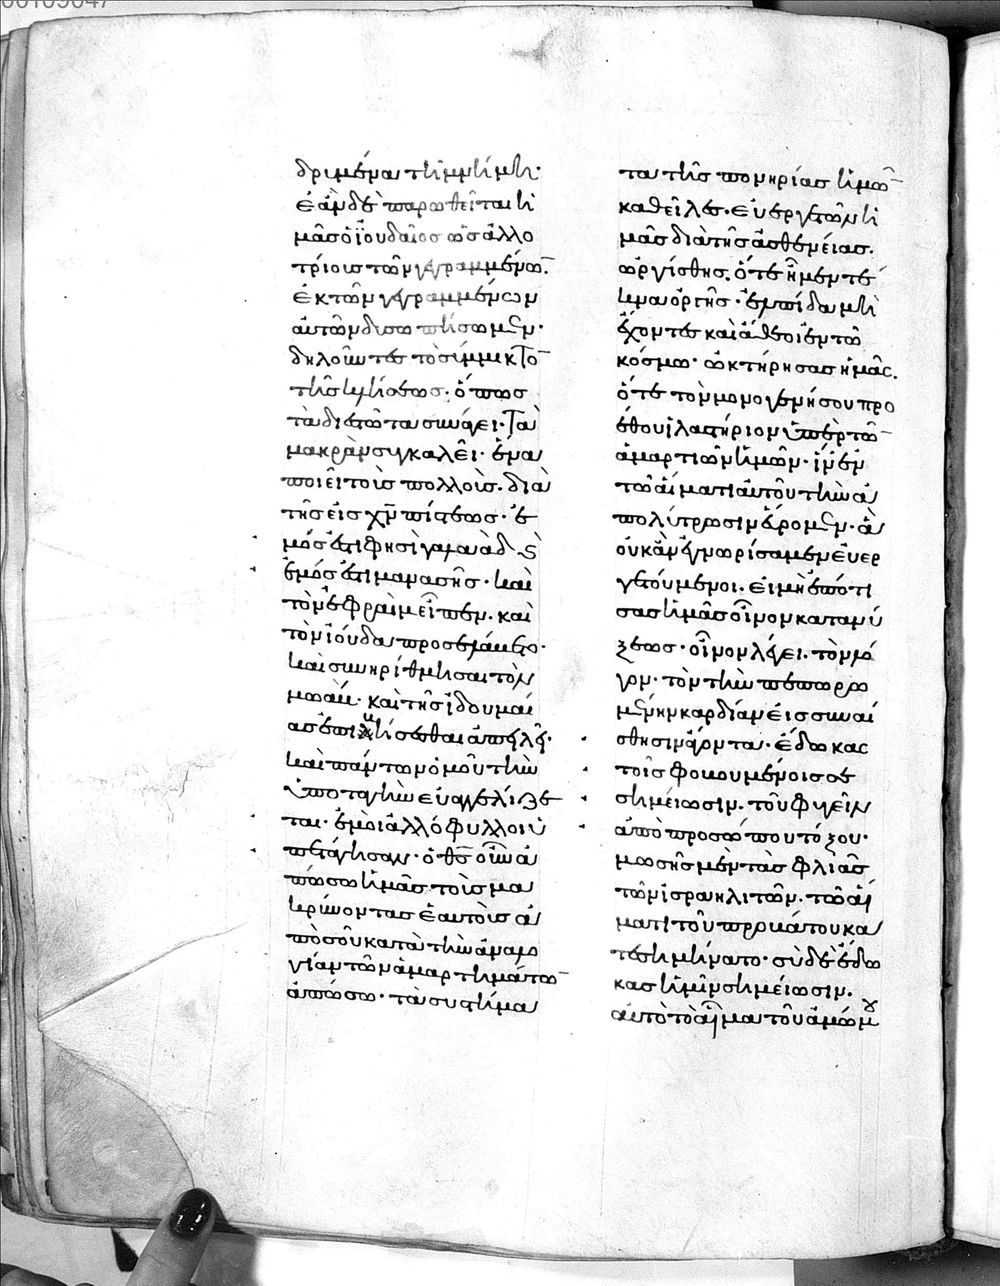 δριμένα τὴν μνήμην·
ἐὰν δὲ παρωθεῖται ἡ
μᾶσ ὁ ἰουδαῖοσ ὡσ ἀλλο
τρίουσ τῶν γεγραμμένω̅·
ἐκ τῶν γεγραμμένων
αὐτῶν δυσωπήσωμεν·
δηλοῦντεσ τὸ σύμμικτο̅
τῆσ κλήσεωσ· ὅπωσ
τὰ διεστῶτα συνάγει· τὰ
μακρὰν συγκαλεῖ· ἕνα
ποιεῖ τοὶσ πολλοὶσ· διὰ
τῆσ εἰσ χ̅ν̅ πίστεωσ· ἐ
μόσ ἐστι φησὶ γαλαὰδ· ὃ
ἐμόσ ἐστι μανασῆσ· καὶ
τὸν ἐφραὶμ εἶπεν· καὶ
τὸν ἰούδα προσελάβετο·
καὶ συνηρίθμησαι τὸν
μωὰβ· καὶ τῆσ ἰδουμαί
ασ ἐπικλήσεσθαι ἀπειλεῖ·
καὶ πάντων ὁμοῦ τὴν
ὑποταγὴν εὐαγγελίζε
ται· ἐμοὶ ἀλλόφυλλοι ὑ
πετάγησαν· ὁ θ̅σ̅ οὖν ἀ
πώσω ἡμᾶσ τοὶσ μα
κρύνοντασ ἑαυτοὶσ ἀ
πὸ σοῦ κατὰ τὴν ἀναλο
γίαν τῶν ἁμαρτημάτω̅
ἀπώσω· τὰ συστήμα
τα τῆσ πονηρίασ ἡμω̅
καθεῖλεσ· εὐεργετῶν ἡ
μᾶσ διὰ τῆσ ἀσθενείασ·
ὠργίσθησ· ὅτε ἦμεν τέ
κνα ὀργῆσ· ἐλπίδα μὴ
ἔχοντεσ καὶ ἄθεοι ἐν τῶ
κόσμω· ὠκτήρησασ ἡμᾶσ·
ὅτε τὸν μονογενή σου προ
έθου ἱλαστήριον ὑπὲρ τῶ̅
ἁμαρτιῶν ἡμῶν· ἵν᾽ ἐν
τῶ αἵματι αὐτοῦ τὴν ἀ
πολύτρωσιν εὕρομεν· ἃ
οὐκ ἂν ἐγνωρίσαμεν εὐερ
γετούμενοι· εἰ μὴ ἐπότι
σασ ἡμᾶσ οἶνον κατανύ
ξεωσ· οἶνον λέγει· τὸν λό
γον· τὸν τὴν πεπωρω
μένην καρδίαν εἰσ συναί
σθησιν ἄγοντα· ἔδωκασ
τοῖσ φοβουμένοισ σε
σημείωσιν· τοῦ φυγεῖν
ἀπὸ προσώπου τόξου·
μωσῆσ μὲν τὰσ φλιὰσ
τῶν ἰσραηλιτῶν· τῶ αἵ
ματι τοῦ προβάτου κα
τεσημήνατο· σὺ δὲ ἔδω
κασ ἡμῖν σημείωσιν·
αὐτὸ τὸ αἷμα τοῦ ἀμώμου